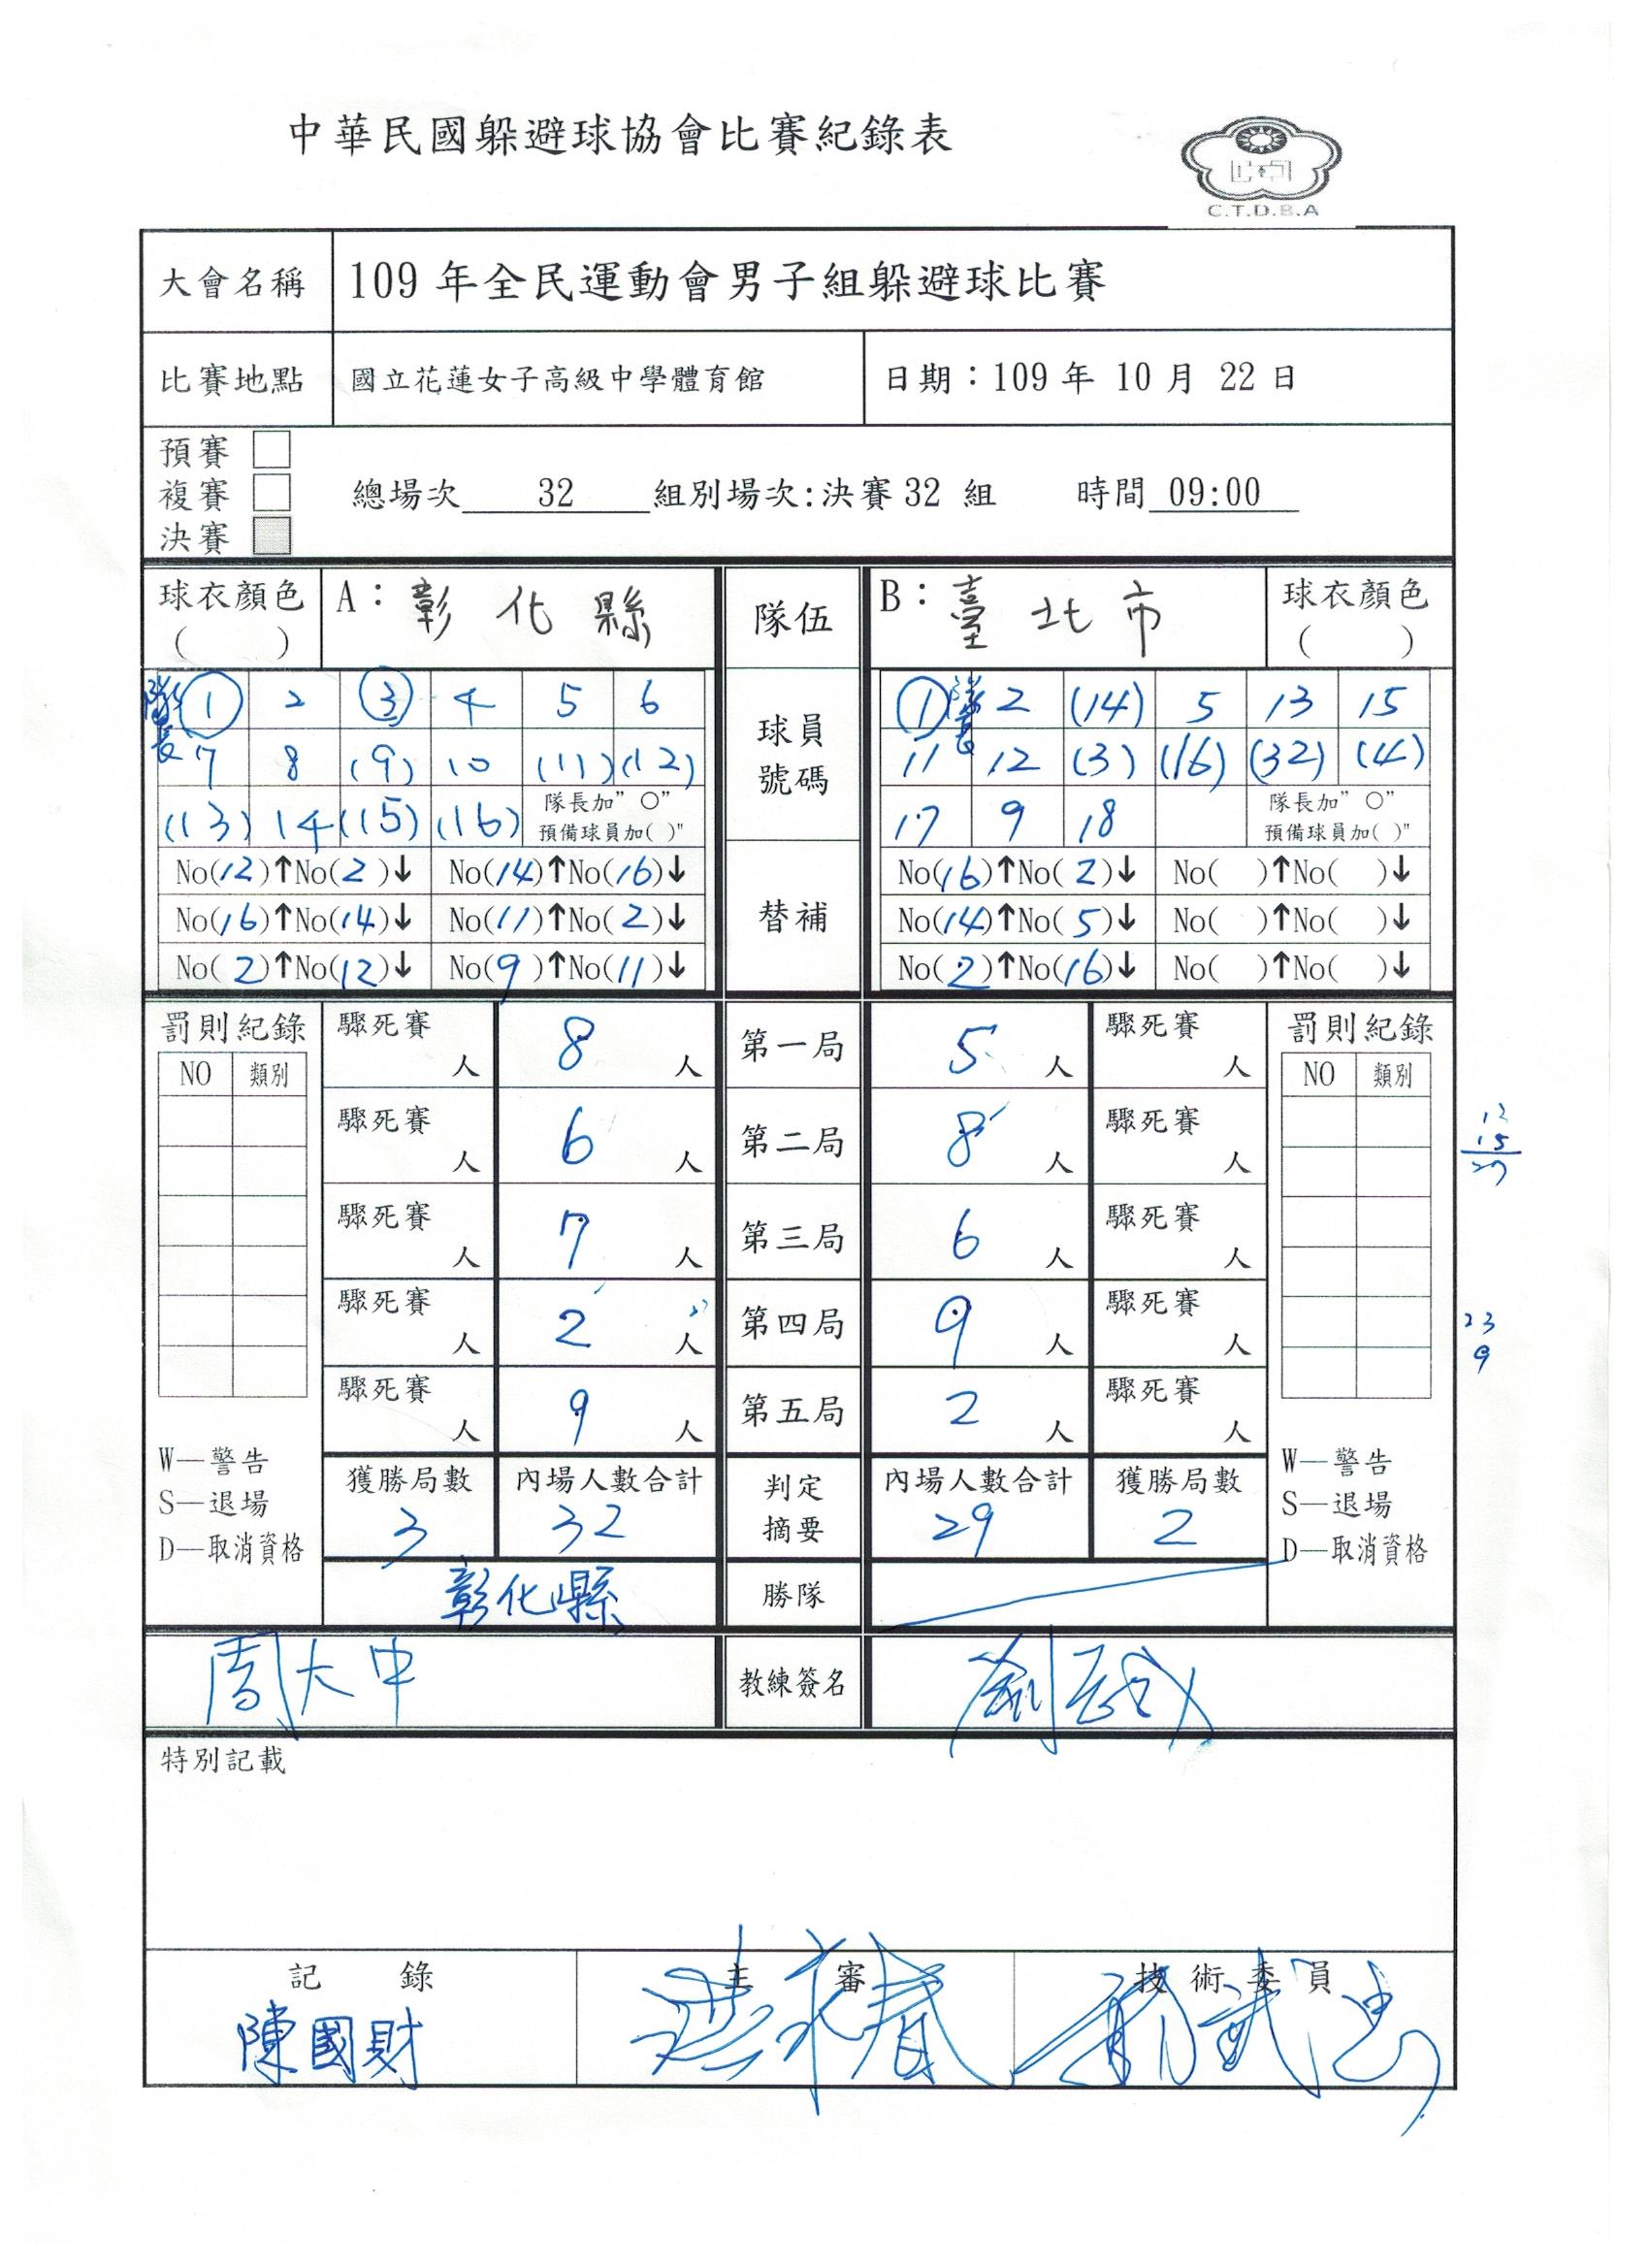 中華民國躲避球協會比賽紀錄表
C.T.D.B.A
大會名稱 109 年全民運動會男子組躲避球比賽
比賽地點 國立花蓮女子高級中學體育館 日期：109 年 10 月 22 日
預賽
複賽 總場次 32 組別場次:決賽 32 組 時間 09:00
決賽
球衣顏色 ( ) A：彰化縣 隊伍 B：臺北市 球衣顏色 ( )
隊長 1 2 3 4 5 6 球員號碼 1 隊長 2 (14) 5 13 15
7 8 (9) 10 (11) (12) 11 12 (3) (16) (32) (4)
(13) 14 (15) (16) 隊長加"○" 預備球員加( )" 17 9 18 隊長加"○" 預備球員加( )"
No(12)↑No(2)↓ No(14)↑No(16)↓ 替補 No(16)↑No(2)↓ No( )↑No( )↓
No(16)↑No(14)↓ No(11)↑No(2)↓ No(14)↑No(5)↓ No( )↑No( )↓
No(2)↑No(12)↓ No(9)↑No(11)↓ No(2)↑No(16)↓ No( )↑No( )↓
罰則紀錄 驟死賽 人 8 人 第一局 5 人 驟死賽 人 罰則紀錄
NO 類別 NO 類別
驟死賽 人 6 人 第二局 8 人 驟死賽 人
15
27
驟死賽 人 7 人 第三局 6 人 驟死賽 人
驟死賽 人 2 人 第四局 9 人 驟死賽 人
23
9
驟死賽 人 9 人 第五局 2 人 驟死賽 人
W—警告 獲勝局數 內場人數合計 判定摘要 內場人數合計 獲勝局數 W—警告
S—退場 3 32 29 2 S—退場
D—取消資格 D—取消資格
彰化縣 勝隊
周大中 教練簽名
特別記載
記 錄 主 審 技 術 委 員
陳國財